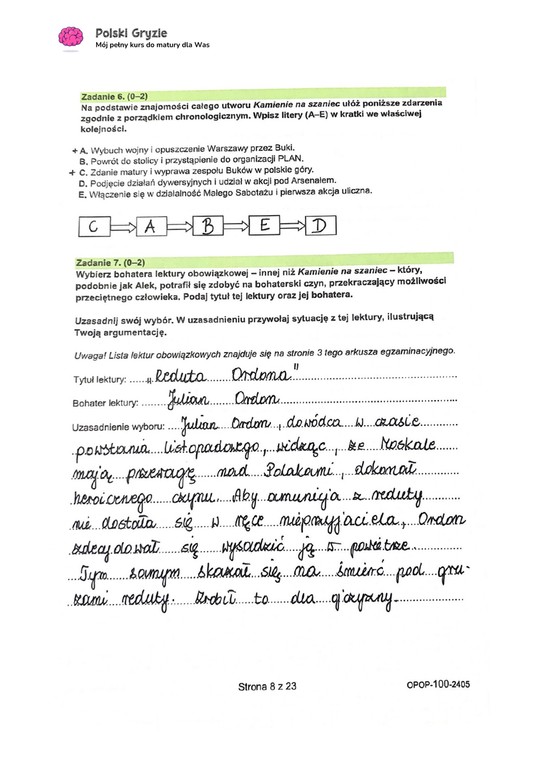 Polski Gryzie
Mój pełny kurs do matury dla Was
Zadanie 6. (0–2)
Na podstawie znajomości całego utworu Kamienie na szaniec ułóż poniższe zdarzenia
zgodnie z porządkiem chronologicznym. Wpisz litery (A–E) w kratki we właściwej
kolejności.
+ A. Wybuch wojny i opuszczenie Warszawy przez Buki.
B. Powrót do stolicy i przystąpienie do organizacji PLAN.
+ C. Zdanie matury i wyprawa zespołu Buków w polskie góry.
D. Podjęcie działań dywersyjnych i udział w akcji pod Arsenałem.
E. Włączenie się w działalność Małego Sabotażu i pierwsza akcja uliczna.
C ⇒ A ⇒ B ⇒ E ⇒ D
Zadanie 7. (0–2)
Wybierz bohatera lektury obowiązkowej – innej niż Kamienie na szaniec – który,
podobnie jak Alek, potrafił się zdobyć na bohaterski czyn, przekraczający możliwości
przeciętnego człowieka. Podaj tytuł tej lektury oraz jej bohatera.
Uzasadnij swój wybór. W uzasadnieniu przywołaj sytuację z tej lektury, ilustrującą
Twoją argumentację.
Uwaga! Lista lektur obowiązkowych znajduje się na stronie 3 tego arkusza egzaminacyjnego.
Tytuł lektury: „Reduta Ordona"
Bohater lektury: Julian Ordon
Uzasadnienie wyboru: Julian Ordon, dowódca w czasie
powstania listopadowego, widząc, że Moskale
mają przewagę nad Polakami, dokonał
heroicznego czynu. Aby amunicja z reduty
nie dostała się w ręce nieprzyjaciela, Ordon
zdecydował się wysadzić ją w powietrze.
Tym samym skazał się na śmierć pod gru-
zami reduty. Zrobił to dla ojczyzny.
Strona 8 z 23
OPOP-100-2405